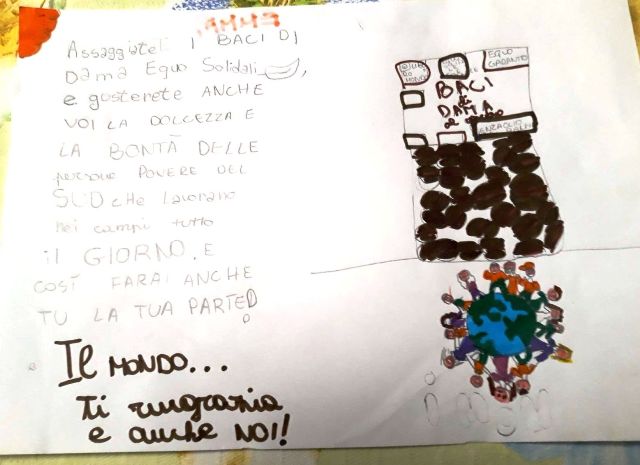 GAMMS
ASSAGGIATELI I BACI DI
DAMA EQUO SOLIDALI,
e gusterete ANCHE
VOI LA DOLCEZZA E
LA BONTÀ DELLE
persone POVERE DEL
SUD cHe lavorano
nei campi tutto
il GIORNO, E
COSÌ FARAI ANCHE
TU LA TUA PARTE!
IL MONDO...
Ti ringrazia
e anche NOI!
EQUO
GARANTITO
BACI
di
DAMA
al cacao
MONDO